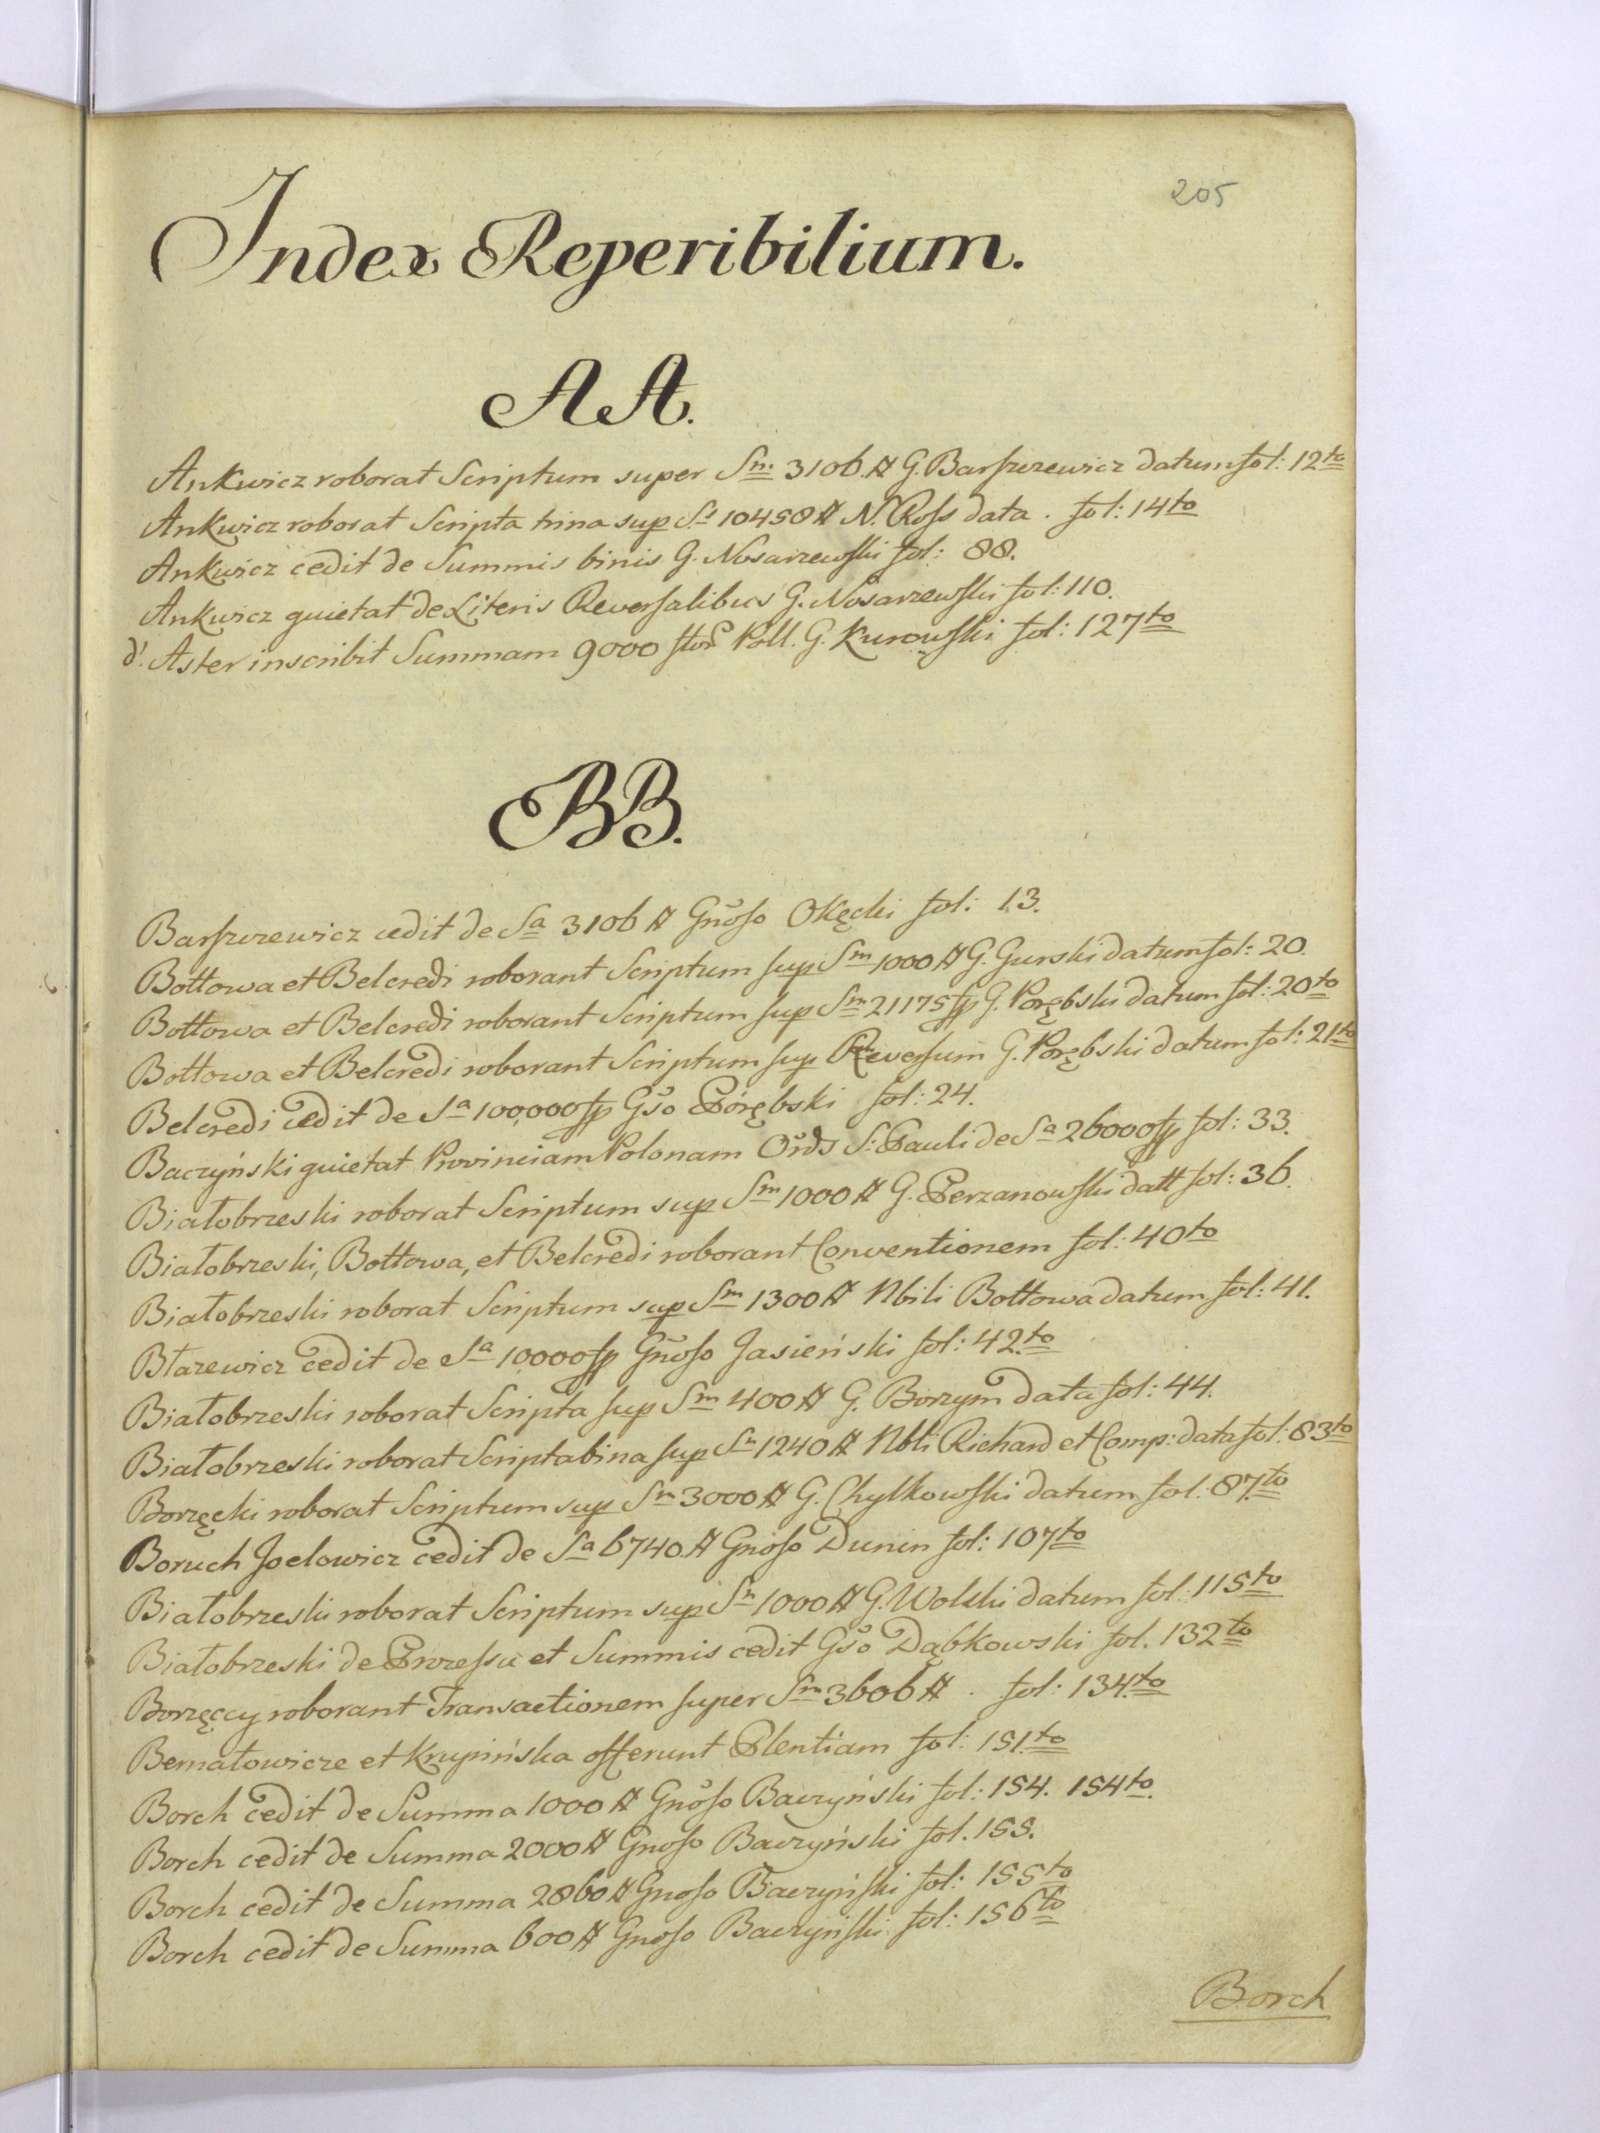 205
Index Reperibilium.
AA.
Ankwicz roborat Scriptum super Sm̲ 3106 # G. Barszczewicz datum fol: 12to
Ankwicz roborat Scripta trina sup Ss 10458 # N. Ross data . fol: 14to
Ankwicz cedit de Summis binis G. Nosarzewski fol: 88.
Ankwicz quietat de Literis Reversalibus G. Nosarzewski fol: 110.
d'. Aster inscribit Summam 9000 flor Poll. G. Kurowski fol: 127to
BB.
Barszczewicz cedit de Sa 3106 # Gnoso Okęcki fol: 13.
Bottowa et Belcredi roborant Scriptum sup Sm 1000 # G. Gurski datum fol: 20.
Bottowa et Belcredi roborant Scriptum sup Sm 21175 fp G. Porębski datum fol: 20to
Bottowa et Belcredi roborant Scriptum sup Reversum G. Porębski datum fol: 21to
Belcredi cedit de Sa 100,000 fp Gso Porębski fol: 24.
Baczyński quietat Provinciam Polonam Ords S: Pauli de Sa 26000 fp fol: 33.
Białobrzeski roborat Scriptum sup Sm 1000 # G. Perzanowski datt fol: 36.
Białobrzeski, Bottowa, et Belcredi roborant Conventionem fol: 40to
Białobrzeski roborat Scriptum sup Sm 1300 # Nbili Bottowa datum fol: 41.
Błazewicz cedit de Sa 10000 fp Gnoso Jasieński fol: 42to
Białobrzeski roborat Scripta sup Sm 400 # G. Borzym data fol: 44.
Białobrzeski roborat Scripta bina sup Sm 1240 # Nbli Richard et Comp: data fol: 83to
Borzęcki roborat Scriptum sup Sm 3000 # G. Chylkowski datum fol: 87to
Boruch Joelowicz cedit de Sa 6740 # Gnoso Dunin fol: 107to
Białobrzeski roborat Scriptum sup Sm 1000 # G. Wolski datum fol: 115to
Białobrzeski de Processu et Summis cedit Gso Dąbkowski fol. 132to
Borzęccy roborant Transactionem super Sm 3606 # . fol: 134to
Bernatowicze et Krupińska offerunt Plentiam fol: 151to
Borch cedit de Summa 1000 # Gnoso Baczyński fol: 154. 154to.
Borch cedit de Summa 2000 # Gnoso Baczyński fol. 155.
Borch cedit de Summa 2860 # Gnoso Baczyński fol: 155to
Borch cedit de Summa 600 # Gnoso Baczyński fol: 156to
Borch